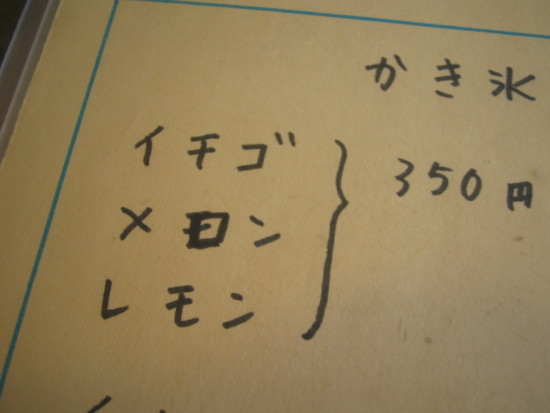 かき氷
イチゴ
メロン
レモン
350円